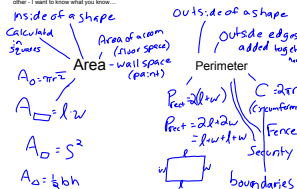 other - I want to know what you know....
inside of a shape
Calculated
in
squares
Area of a room
(floor space)
- wall space
(paint)
Area
A○ = πr²
A▭ = l·w
A□ = S²
A△ = ½bh
outside of a shape
outside edges
added toget
Perimeter
P rect = 2(l+w)
P rect = 2l+2w
= l+w+l+w
l
w
w
l
C = 2πr
(circumfere
Fence
Security
boundaries